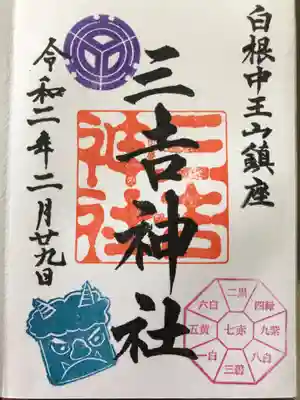 白根中王山鎮座
三吉神社
三吉
神社
令和二年二月廿九日
二黒
四緑
九紫
八白
三碧
一白
五黄
六白
七赤